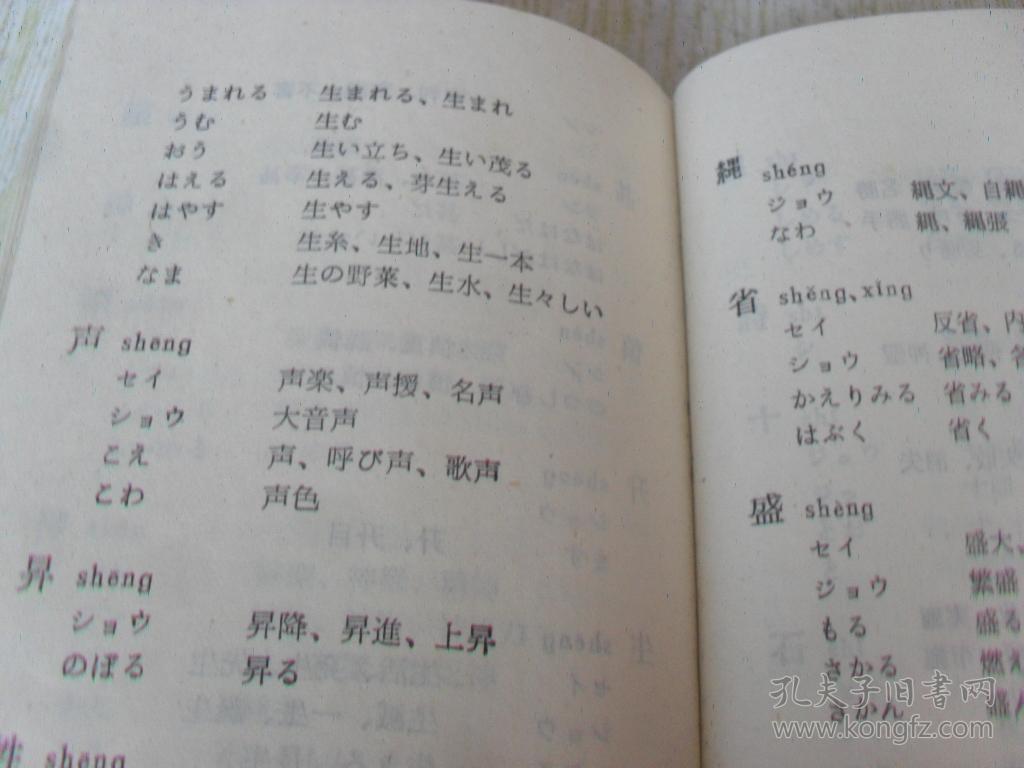 うまれる 生まれる、生まれ
うむ 生む
おう 生い立ち、生い茂る
はえる 生える、芽生える
はやす 生やす
き 生糸、生地、生一本
なま 生の野菜、生水、生々しい
声 shēng
セイ 声楽、声援、名声
ショウ 大音声
こえ 声、呼び声、歌声
こわ 声色
昇 shēng
ショウ 昇降、昇進、上昇
のぼる 昇る
shēng
縄 shéng
ジョウ 縄文、自縄
なわ 縄、縄張
省 shěng、xǐng
セイ 反省、内
ショウ 省略、
かえりみる 省みる
はぶく 省く
盛 shèng
セイ 盛大、
ジョウ 繁盛
もる 盛る
さかる 燃え
さかん 盛ん
孔夫子旧书网
www.kongfz.com